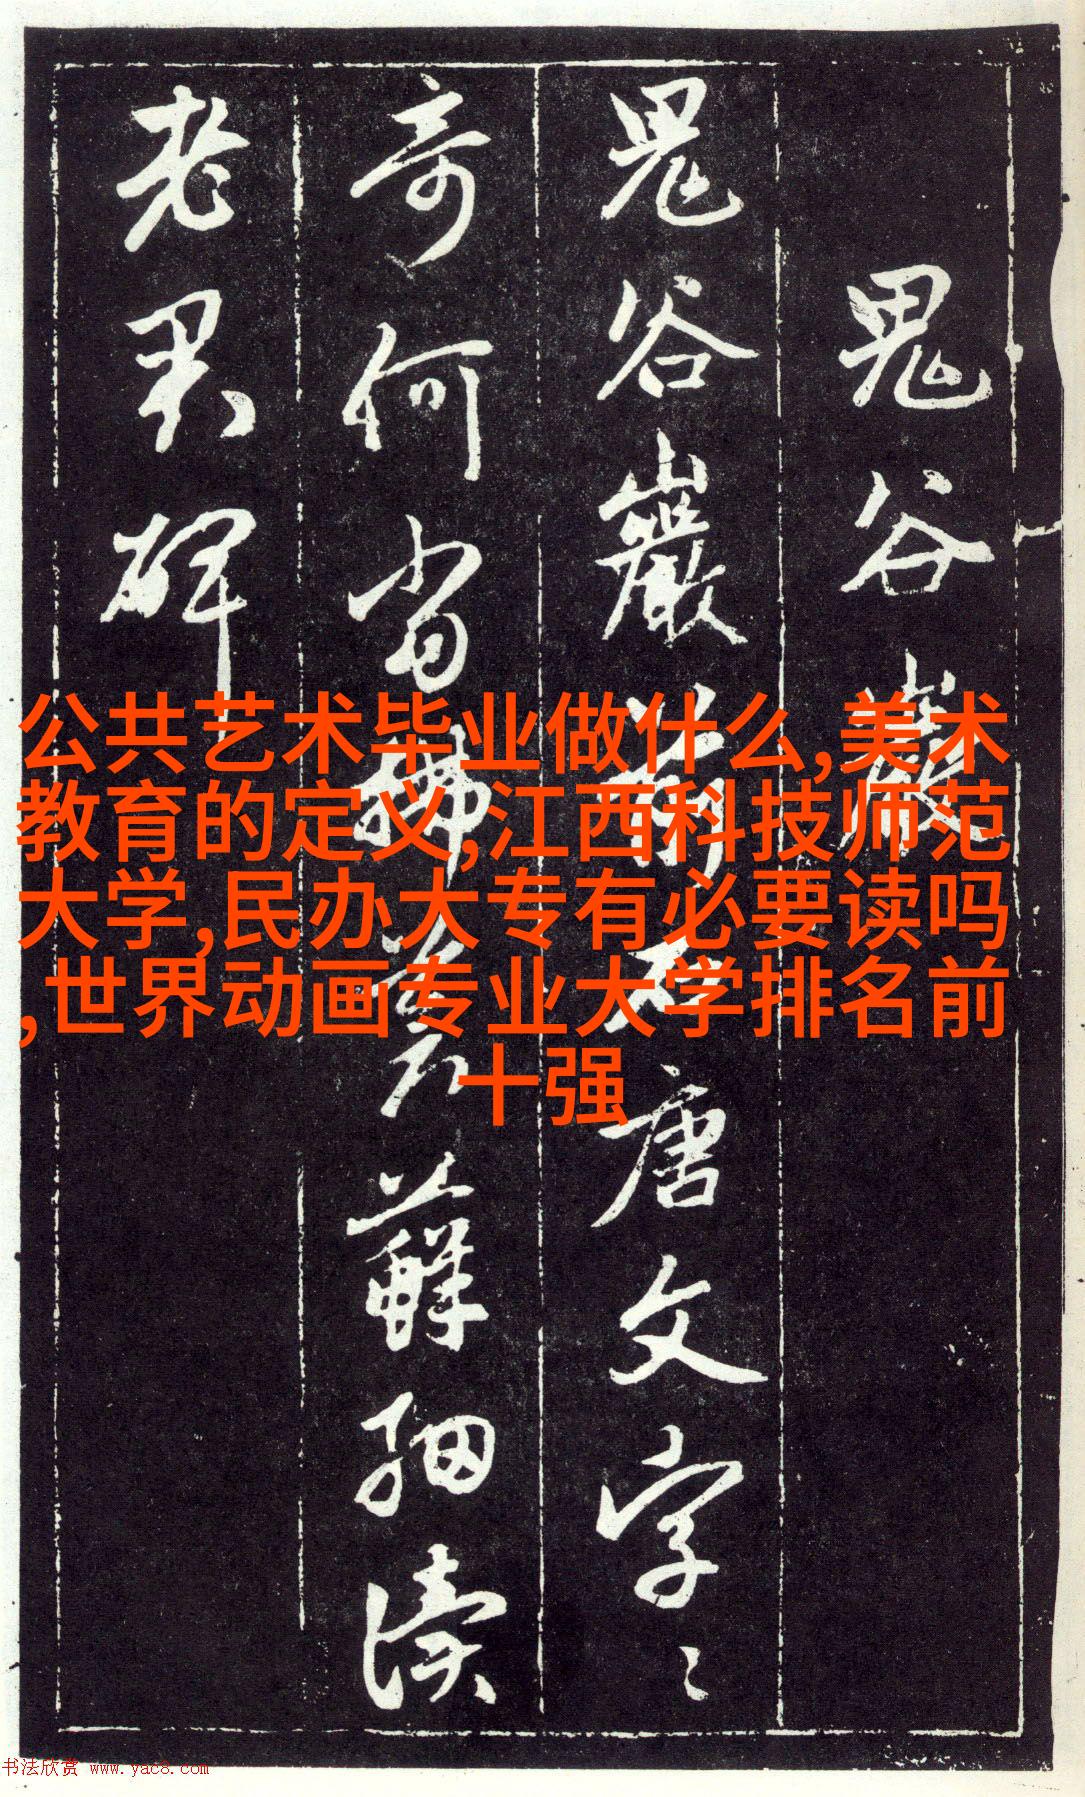 鬼谷巖
鬼谷巖前石唐文字〻
奇何當掃蒼蘚細讀
老君碑
公共艺术毕业做什么,美术
教育的定义,江西科技师范
大学,民办大专有必要读吗
,世界动画专业大学排名前
十强
书法欣赏 www.yac8.com